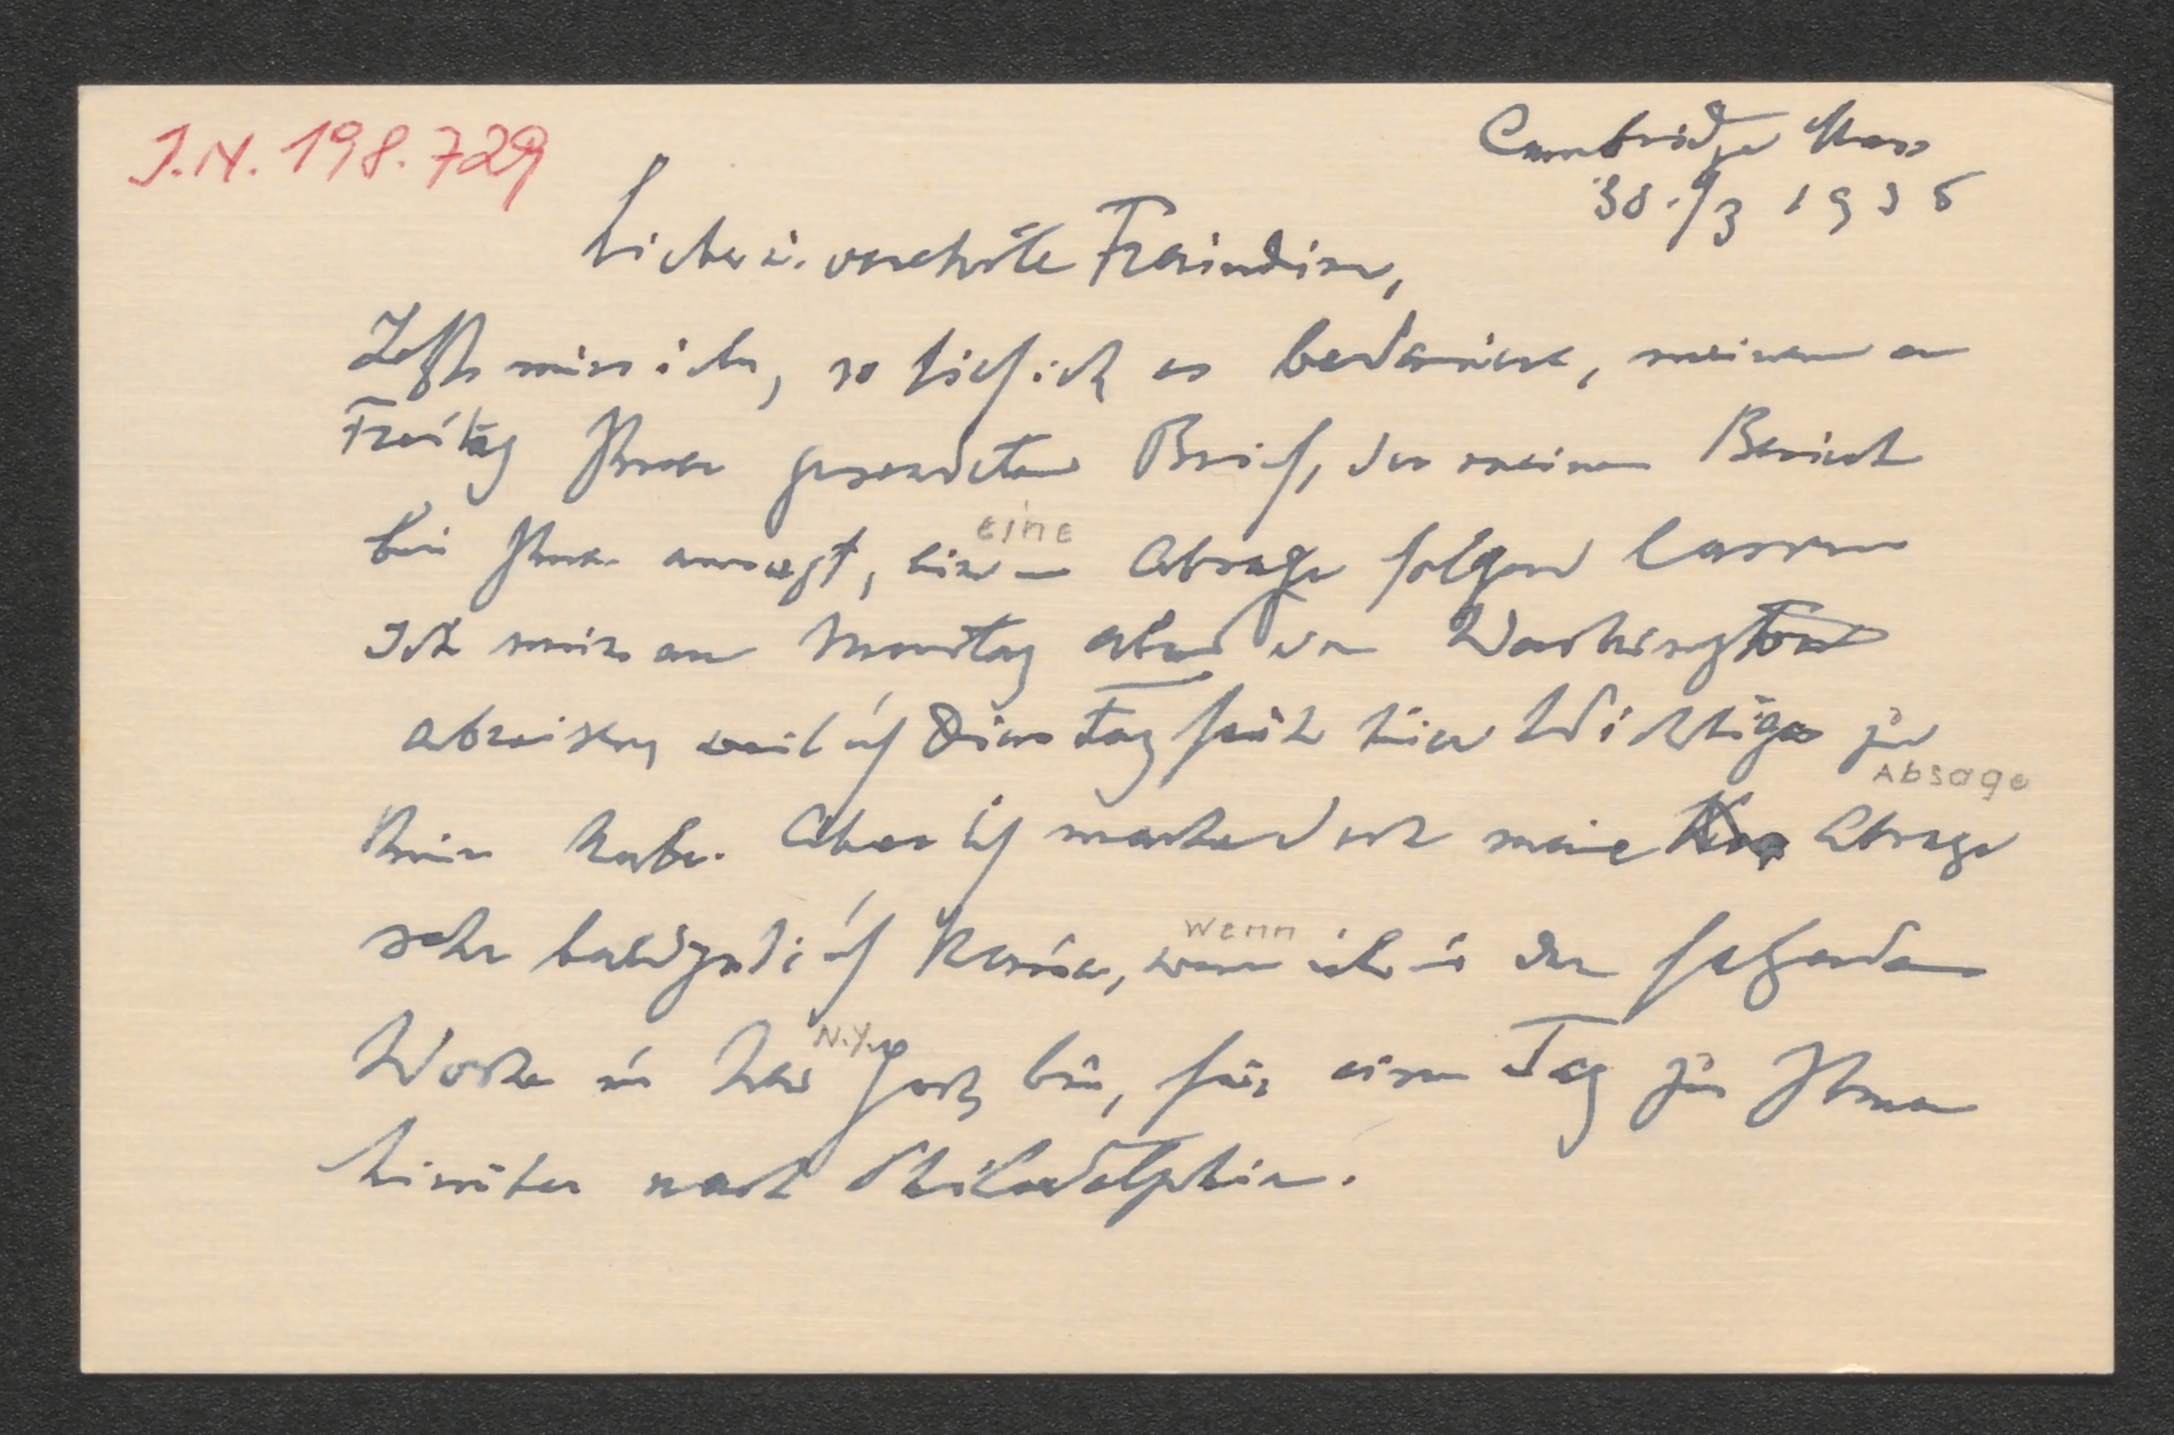 J.N. 198.729
Cambridge Mass
30./3 1936
Liebe u. verehrte Freundin,
Jetzt muss ich, so tief ich es bedauere, meinem am
Freitag Ihnen gesendeten Brief, der meinen Besuch
bei Ihnen ansagt, eine
eine
Absage folgen lassen
Ich muss am Montag abend von Washington
abreisen, weil ich Dienstag früh hier Wichtiges zu
Absage
tun habe. Aber ich mache doch meine Absage
sehr bald gut: ich komme, wenn ich in der folgenden
wenn
Woche in New York bin, für einen Tag zu Ihnen
N.Y.
hinüber nach Philadelphia.